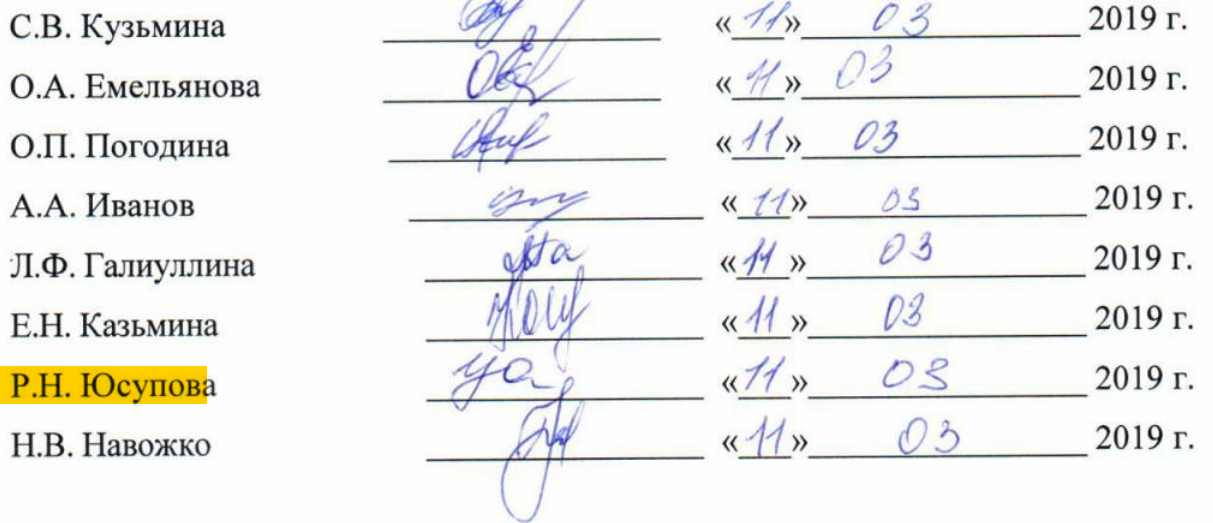 С.В. Кузьмина «11» 03 2019 г.
О.А. Емельянова «11» 03 2019 г.
О.П. Погодина «11» 03 2019 г.
А.А. Иванов «11» 03 2019 г.
Л.Ф. Галиуллина «11» 03 2019 г.
Е.Н. Казьмина «11» 03 2019 г.
Р.Н. Юсупова «11» 03 2019 г.
Н.В. Навожко «11» 03 2019 г.